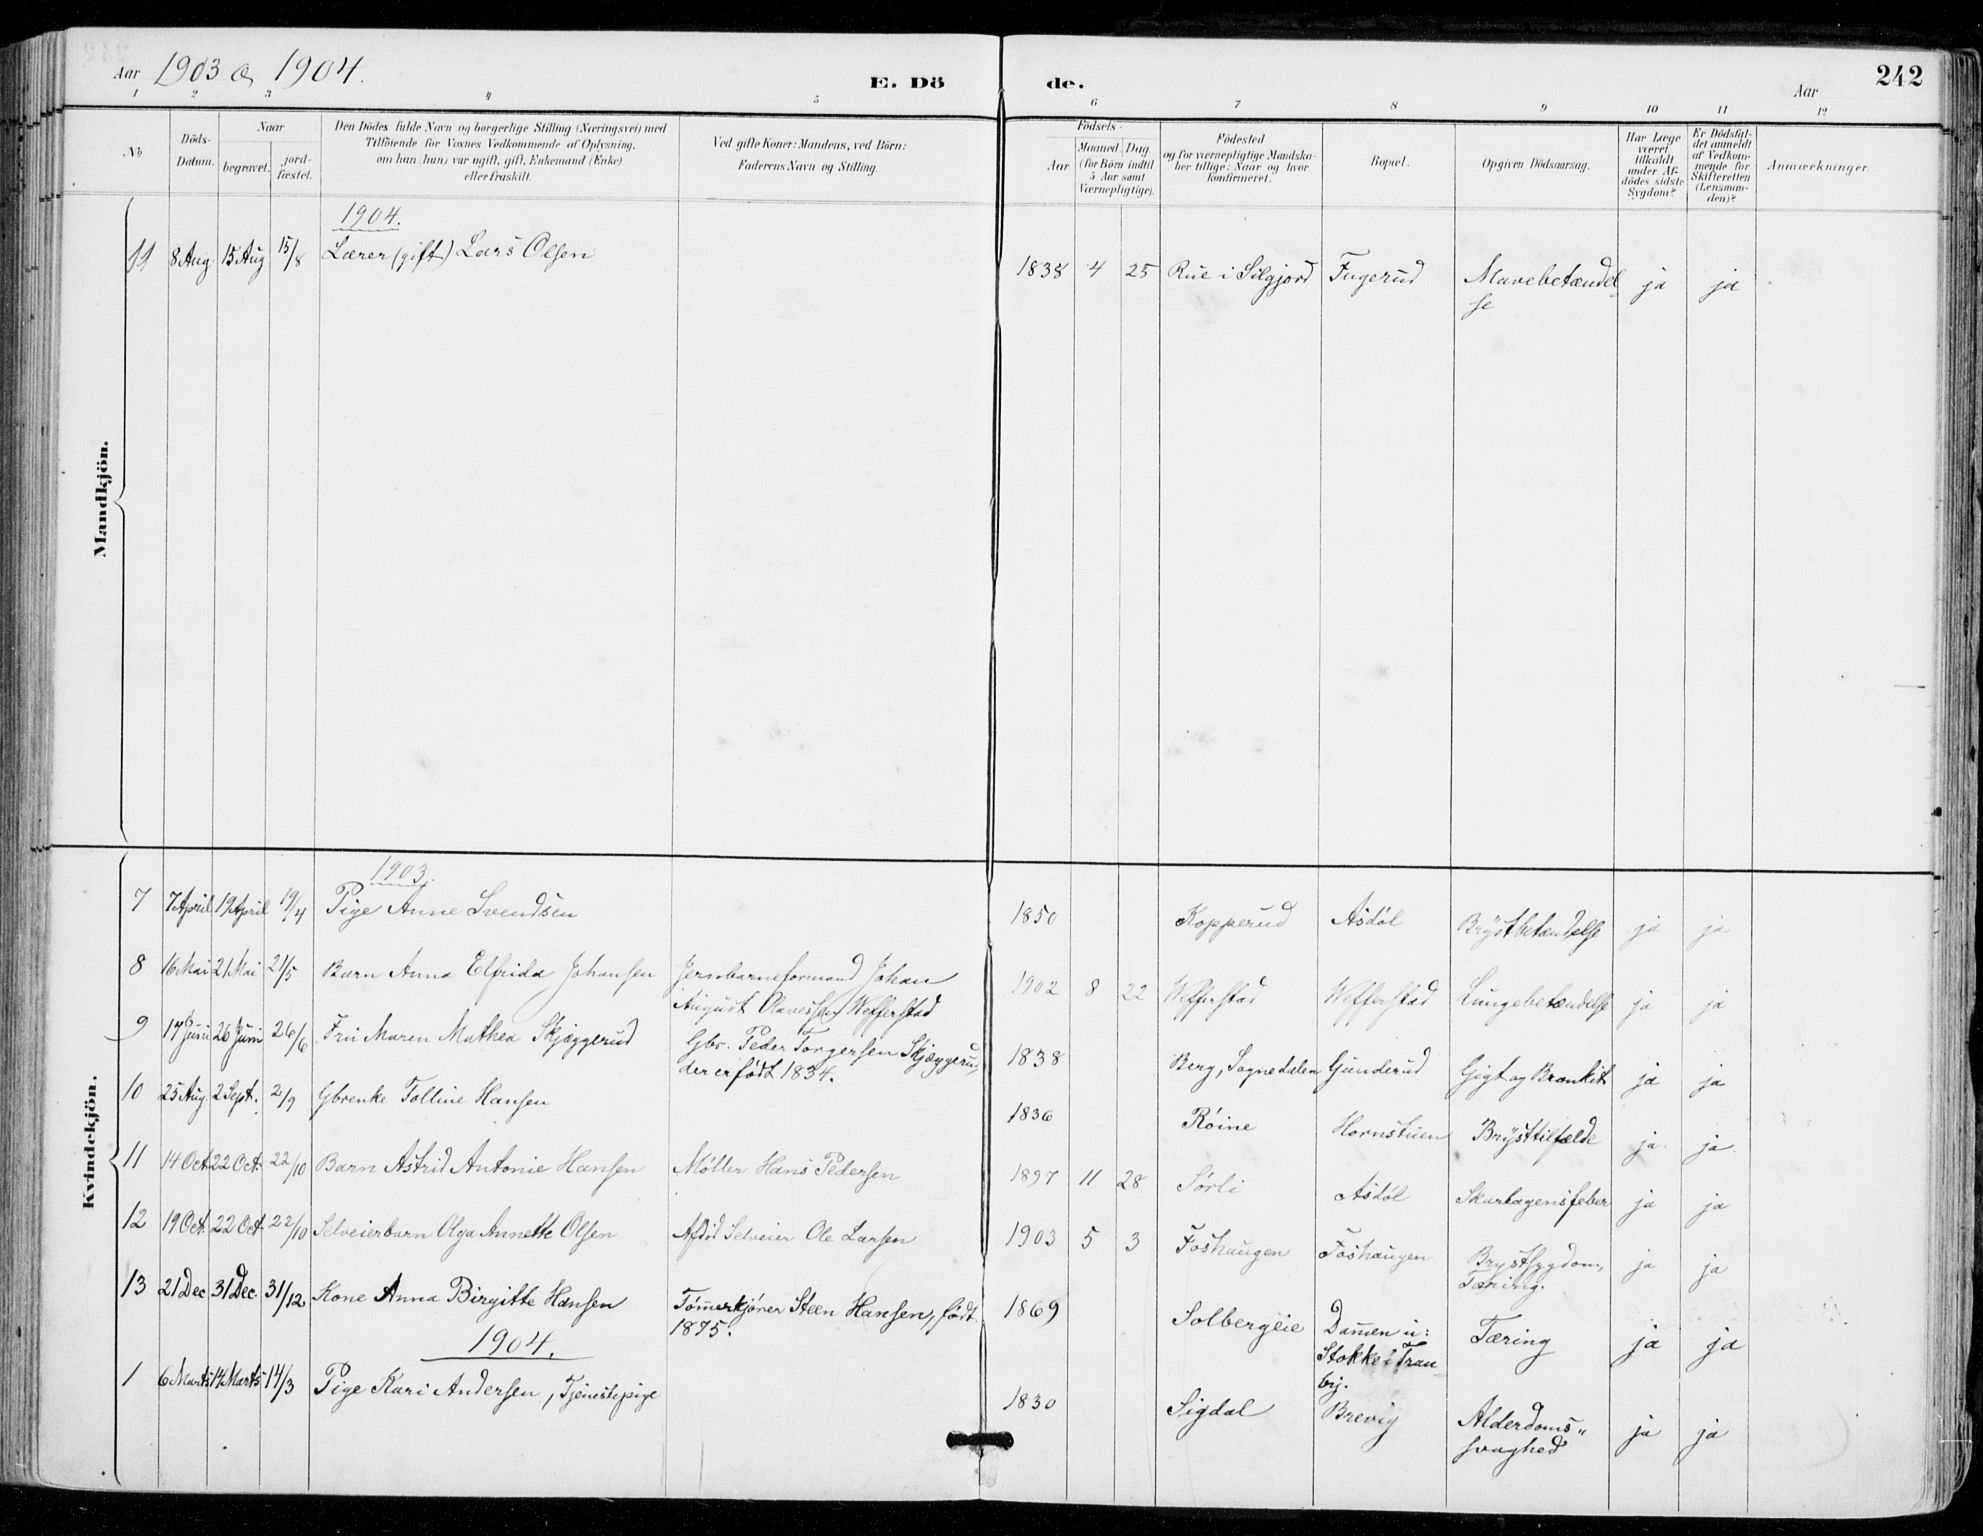 Aar 1903 & 1904.
E. Döde.
Aar
242
1 2 3 4 5 6 7 8 9 10 11 12
No
Döds-Datum.
Naar
begravet.
jordfæstet.
Den Dödes fulde Navn og borgerlige Stilling (Næringsvei) med
Tilföiende for Voxnes Vedkommende af Oplysning,
om han (hun) var ugift, gift, Enkemand (Enke)
eller fraskilt.
Ved gifte Koner: Mandens, ved Börn:
Faderens Navn og Stilling.
Födsels-
Aar
Maaned. Dag
(for Börn indtil
5 Aar samt
Værnepligtige).
Födested
og for værnepligtige Mandska-
ber tillige: Naar og hvor
konfirmeret.
Bopæl.
Opgiven Dödsaarsag.
Har Læge
været
tilkaldt
under Af-
dödes sidste
Sygdom?
Er Dödsfal-
det anmeldt
af Vedkom-
mende for
Skifteretten
(Lensman-
den)?
Anmærkninger.
Mandkjön.
1904.
11 8 Aug. 15 Aug 15/8 Lærer (gift) Lars Olsen 1838 4 25 Rue i Silgjord Fugerud Mavebetændel-
se ja ja
Kvindekjön.
1903.
7 7 April 19 April 19/4 Pige Anne Svendsen 1850 Kopperud Asdøl Brystbetændelse ja ja
8 16 Mai 21 Mai 21/5 Barn Anna Elfrida Johansen Jernbaneformand Johan
August Olavessen Wefferstad 1902 8 22 Wefferstad Wefferstad Lungebetændelse ja ja
9 17 Juni 26 Juni 26/6 Fru Maren Mathea Skjæggerud Gbr. Peder Torgersen Skjæggerud,
der er født 1834. 1838 Berg, Sognedalen Gunderud Gigt og Bronkit ja ja
10 25 Aug. 2 Sept. 2/9 Gbrenke Tolline Hansen 1836 Røine Hornstuen Brysttilfælde ja ja
11 14 Oct. 22 Oct. 22/10 Barn Astrid Antonie Hansen Møller Hans Pedersen 1897 11 28 Sørli Asdøl Skarlagensfeber ja ja
12 19 Oct. 22 Oct. 22/10 Selveierbarn Olga Annette Olsen Afdød Selveier Ole Larsen 1903 5 3 Foshaugen Foshaugen Brystsygdom,
Tæring. ja ja
13 21 Dec 31 Dec. 31/12 Kone Anna Birgitte Hansen Tømerkjører Steen Hansen, født
1875. 1869 Solbergeie Damen u:
Stokke i Tran-
by. Tæring ja ja
1904.
1 6 Marts 14 Marts 14/3 Pige Kari Andersen, Tjenestepige 1830 Sigdal Brevig Alderdoms-
svaghed ja ja